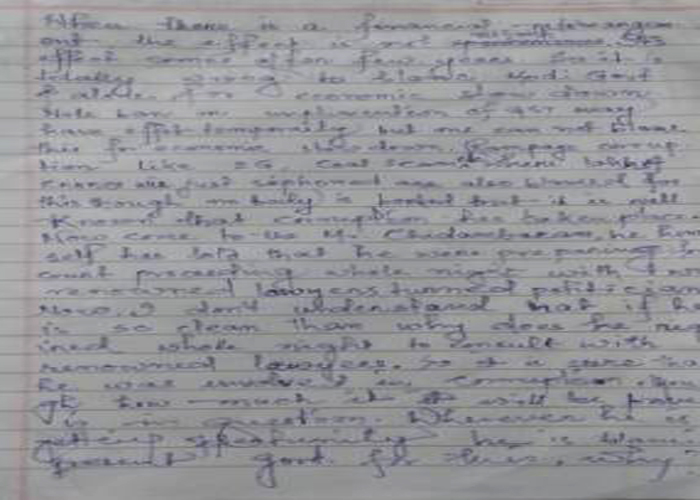 When there is a financial
out the effect is not
effect comes after few years. So it is
totally wrong to blame Modi Govt
alone for economic slow down
Note ban or of GST may
have effect temporarily but one can not blame
this for economic slow down. Rampage corrup
tion like 2G Coal Scam where
just siphoned are also blamed for
this though is that it is well
Known that corruption has taken place
Now come to us Mr. Chidambaram, he him
self has told that he was preparing for
court proceeding whole night with
renowned lawyers turned politician
Now, I don't understand that if he
is so clean than why does he requ
ired whole night to consult with
renowned lawyers. So it is sure
he was involved in corruption.
gh how much it will be
is in question. Whenever he is
getting opportunity he is
present govt. for this, why?